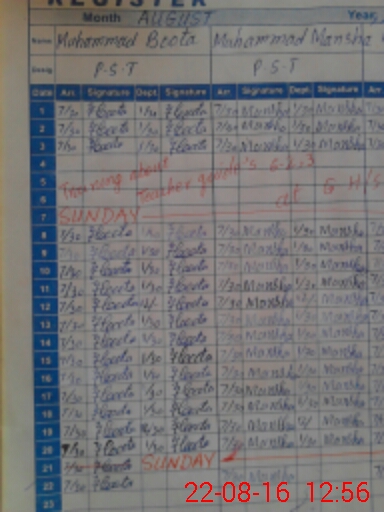 REGISTER
Month AUGUST Year,
Name Muhammad Boota Muhammad Mansha
Desig. P-S-T P-S-T
Date Arr. Signature Dept. Signature Arr. Signature Dept. Signature Arr.
1 7/30 Boota 1/30 Boota 7/30 Mansha 1/30 Mansha
2 7/30 Boota 1/30 Boota 7/30 Mansha 1/30 Mansha
3 7/30 Boota 1/30 Boota 7/30 Mansha 1/30 Mansha
4
5 Training about Teacher guide's 6-2-3
6 at G H/S
7 SUNDAY
8 7/30 Boota 1/30 Boota 7/30 Mansha 1/30 Mansha
9 7/30 Boota 1/30 Boota 7/30 Mansha 1/30 Mansha
10 7/30 Boota 1/30 Boota 7/30 Mansha 1/30 Mansha
11 7/30 Boota 1/30 Boota 7/30 Mansha 1/30 Mansha
12 7/30 Boota 12/ Boota 7/30 Mansha 12/ Mansha
13 7/30 Boota 1/30 Boota 7/30 Mansha 1/30 Mansha
14 7/30 Boota 1/30 Boota 7/30 Mansha 1/30 Mansha
15 7/30 Boota 1/30 Boota 7/30 Mansha 1/30 Mansha
16 7/30 Boota 1/30 Boota 7/30 Mansha 1/30 Mansha
17 7/30 Boota 1/30 Boota 7/30 Mansha 1/30 Mansha
18 7/30 Boota 1/30 Boota 7/30 Mansha 1/30 Mansha
19 7/30 Boota Boota 7/30 Mansha 12/ Mansha
20 7/30 Boota 1/30 Boota 7/30 Mansha 1/30 Mansha
21 7/30 Boota SUNDAY
22 7/30 Boota 7/30 Mansha
23
22-08-16 12:56